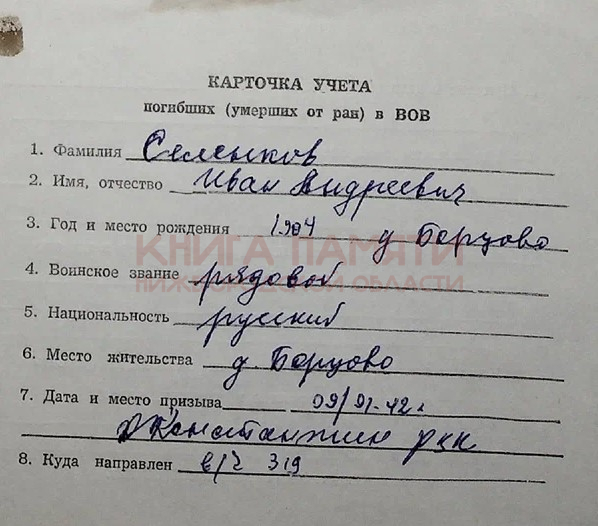 КАРТОЧКА УЧЕТА
погибших (умерших от ран) в ВОВ
1. Фамилия Селенков
2. Имя, отчество Иван Андреевич
3. Год и место рождения 1904 д Борцово
КНИГА ПАМЯТИ
НИЖЕГОРОДСКОЙ ОБЛАСТИ
4. Воинское звание рядовой
5. Национальность русский
6. Место жительства д. Борцово
7. Дата и место призыва 09/01-42г
Д Константин РКК
8. Куда направлен в/ч 319